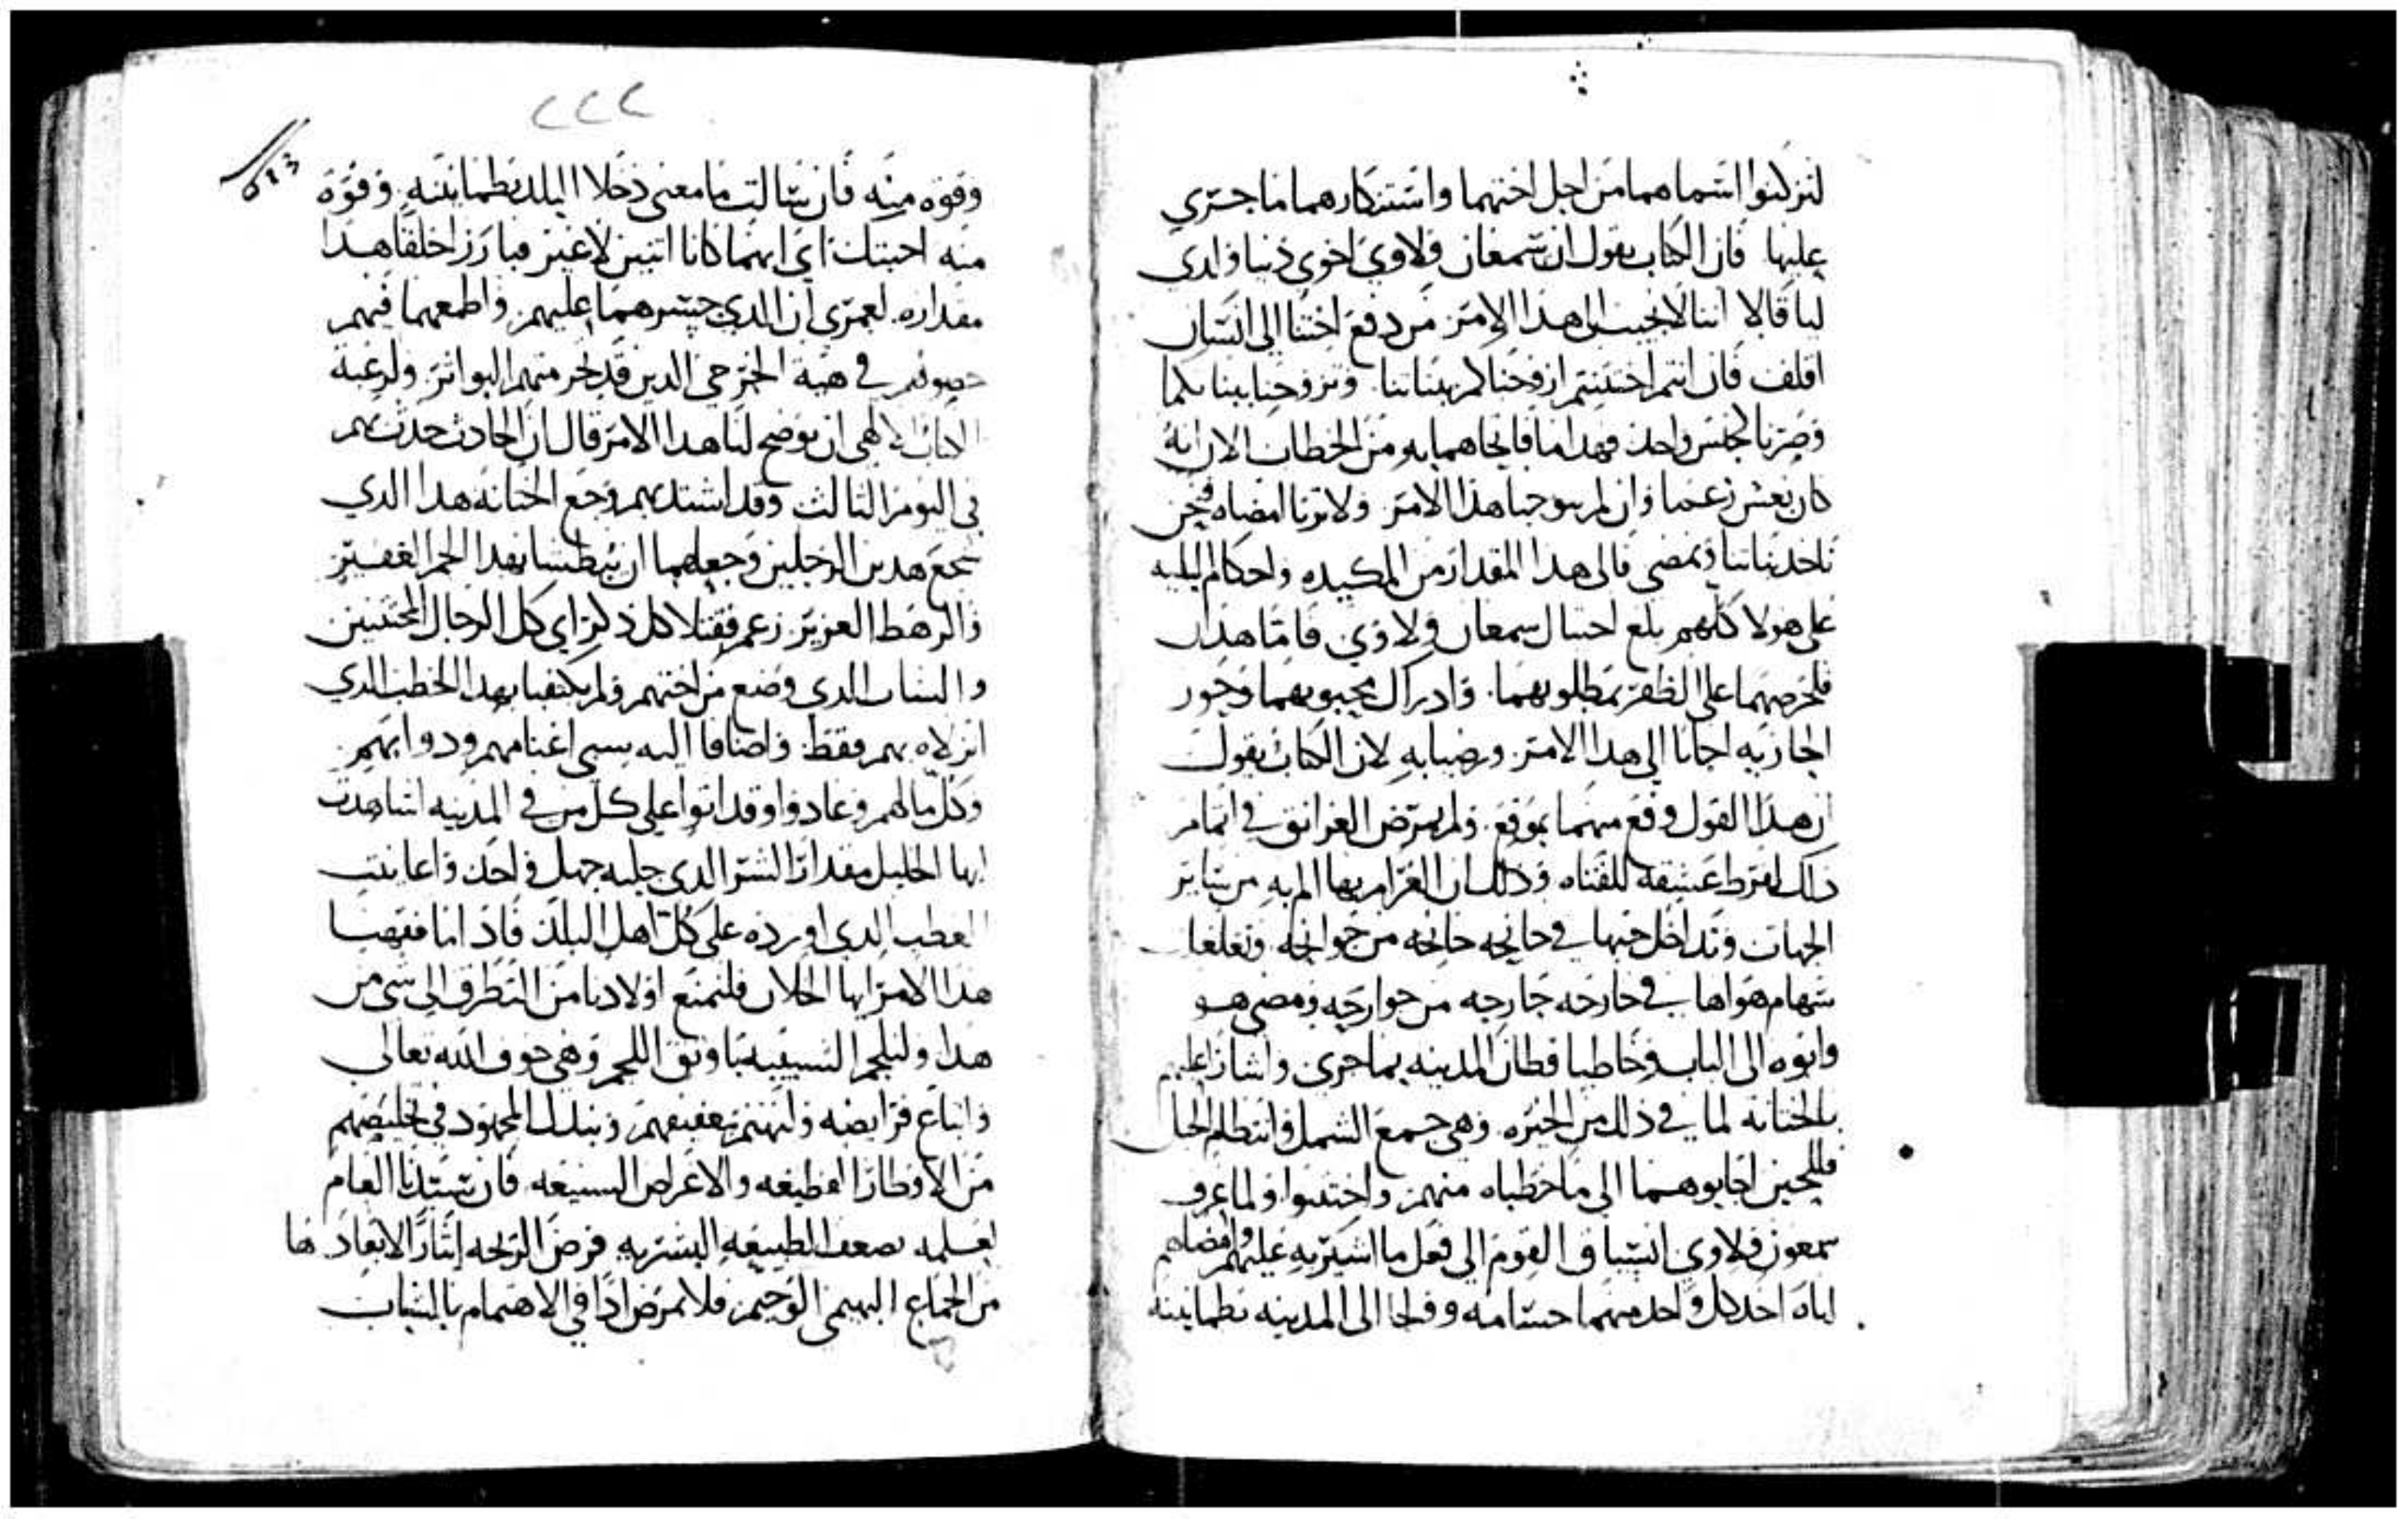 لتركنوا اسماهما من اجل اختهما واستنكارهما ما جري
عليها فان الكتاب يقول ان سمعان ولاوي اخوي دينا وايدي
لبا قالا اننا لا نجيب الي هدا الامر من دفع اختنا الي انسان
اقلف فان انتم اختتنتم ازوجناكم بناتنا وتزوجنا بناتكما
وصرنا كجنس واحد فهدا ما فاتحاهما به من الخطاب الا انه
كان بغش زعما وان لم يوجبا هدا الامر ولا تريا امضاه فنحن
ناخد بناتنا ونمضي فالي هدا المقدار من المكيده واحكام البليه
علي هولا كلهم بلغ احتيال سمعان ولاوي فاما هدان
فلحرصهما علي الظفر بمطلوبهما وادراك محبوبهما وحور
الجاريه اجابا الي هدا الامر ورضيا به لان الكتاب يقول
ان هدا القول وقع منهما بموقع ولم يمرض الغرانق في اتمام
دلك لفرط عشقه للفتاه ودلك ان الغرام بها الم به من ساير
الجهات وتداخل حبها في جانحه جانحه من جوانحه وتغلغل
سهام هواها في جارحه جارحه من جوارحه ومضي هو
وابوه الي الباب وخاطبا قطان المدينه بما جري واشارا عليهم
بالختانه لما في دلك من الخيره وهي جمع الشمل وانتظام الحال
فللحين اجابوهما الي ما خطباه منهم واختتنوا ولما عرف
سمعون ولاوي انسياق القوم الي فعل ما اشير به عليهم وامضاهم
اياه اخد كل واحد منهما حسامه وولجا الي المدينه بطمانينه
٢٢٢
وقوه منه فان سالت ما معني دخلا البلد بطمانينه وقوة
منه اجبتك اي انهما كانا اتنين لا غير فبارزا خلقا هدا
مقداره لعمري ان الدي جسرهما عليهم واطمعهما فيهم
حصولهم في هيئة الجرحي الدين قد نخر منهم البواتر ولرغبة
الكتاب الالهي ان يوضح لنا هدا الامر قال ان الحادث حدث بهم
في اليوم التالت وقد اشتد بهم وجع الختانه هدا الدي
شجع هدين الرجلين وجعلهما ان يبطشا بهدا الجم الغفير
والرهط العزيز زعم فقتلا كل دكر اي كل الرجال المختتنين
والشاب الدي وضع من اختهم ولم يكتفيا بهدا الخطب الدي
انزلاه بهم فقط واضافا اليه سبي اغنامهم ودوابهم
وكل مالهم وعادوا وقد اتوا علي كل من في المدينه اشاهدت
ايها الخليل مقدار الشر الدي جلبه جهل واحد واعاينت
العطب الدي اورده علي كل اهل البلد فاد اما فقهنا
هدا الامر ايها الخلان فلنمنع اولادنا من التطرف الي شي من
هدا ولنلجم الشبيبه باوثق اللجم وهي خوف الله تعالي
واتباع فرايضه ولنهتم بعفتهم وبدل المجهود في تخليصهم
من الاوطار الفظيعه والاغراض الشنيعه فان سيدنا العام
لعلمه بضعف الطبيعه البشريه فرض الزيجه ايثارا لابعادها
من الجماع البهيمي الوخيم فلا نمرض ادا في الاهتمام بالشباب